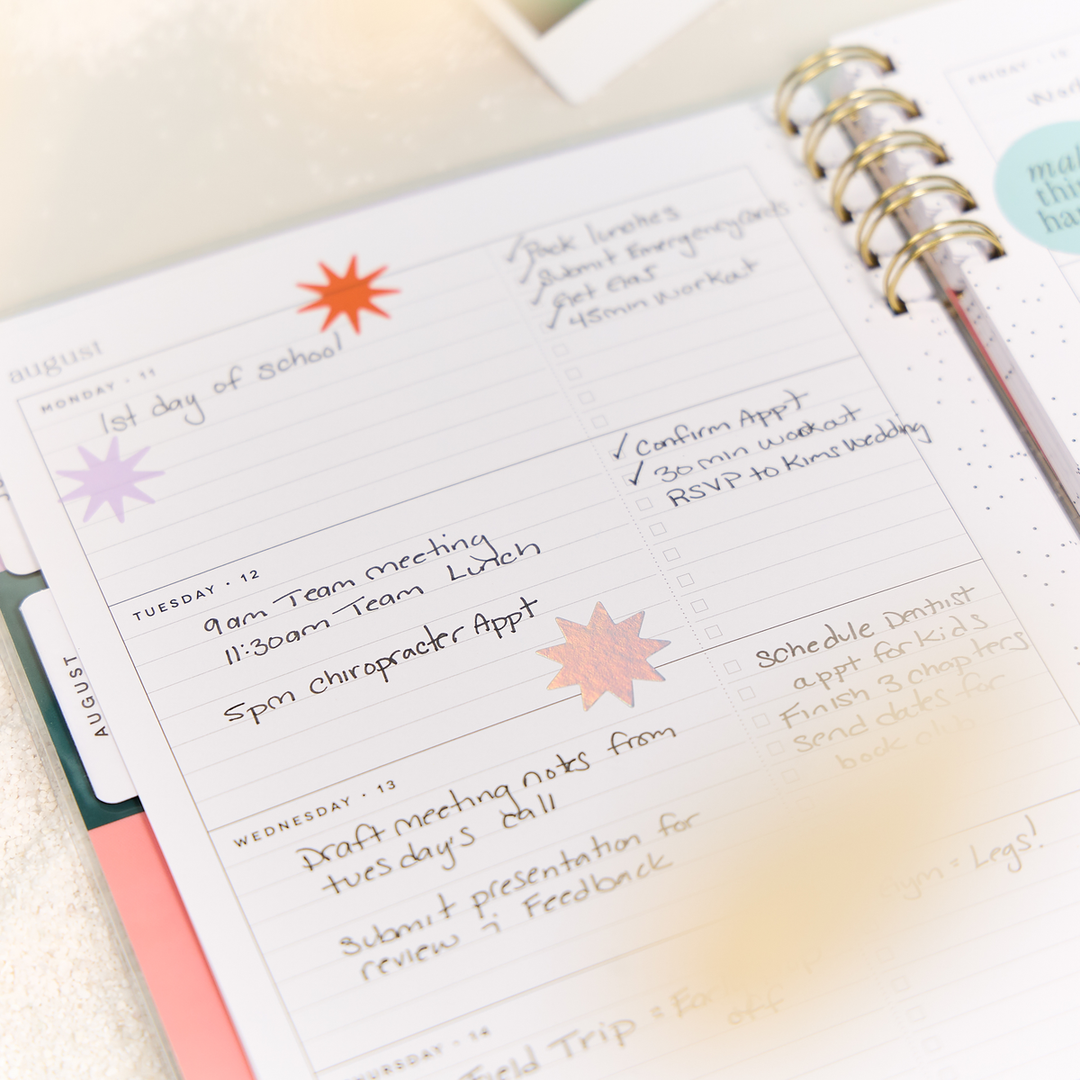 august
MONDAY · 11
1st day of school
Pack lunches
Submit Emergency
Get Gas
45min workout
TUESDAY · 12
9am Team meeting
11:30am Team Lunch
5pm Chiropracter Appt
Confirm Appt
30 min workout
RSVP to Kims Wedding
WEDNESDAY · 13
Draft meeting notes from
tuesday's call
Submit presentation for
review Feedback
Schedule Dentist
appt for kids
Finish 3 chapters
Send dates for
book club
Gym = Legs!
THURSDAY · 14
Field Trip =
off
AUGUST
FRIDAY · 15